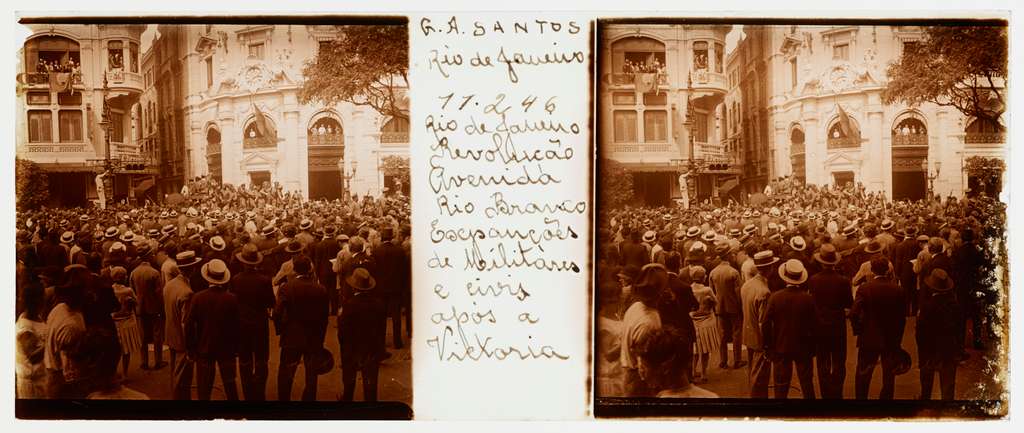 G. A. SANTOS
Rio de Janeiro
11.2 46
Rio de Janeiro
Revolução
Avenida
Rio Branco
Exepanções
de Militares
e civis
após a
Victoria